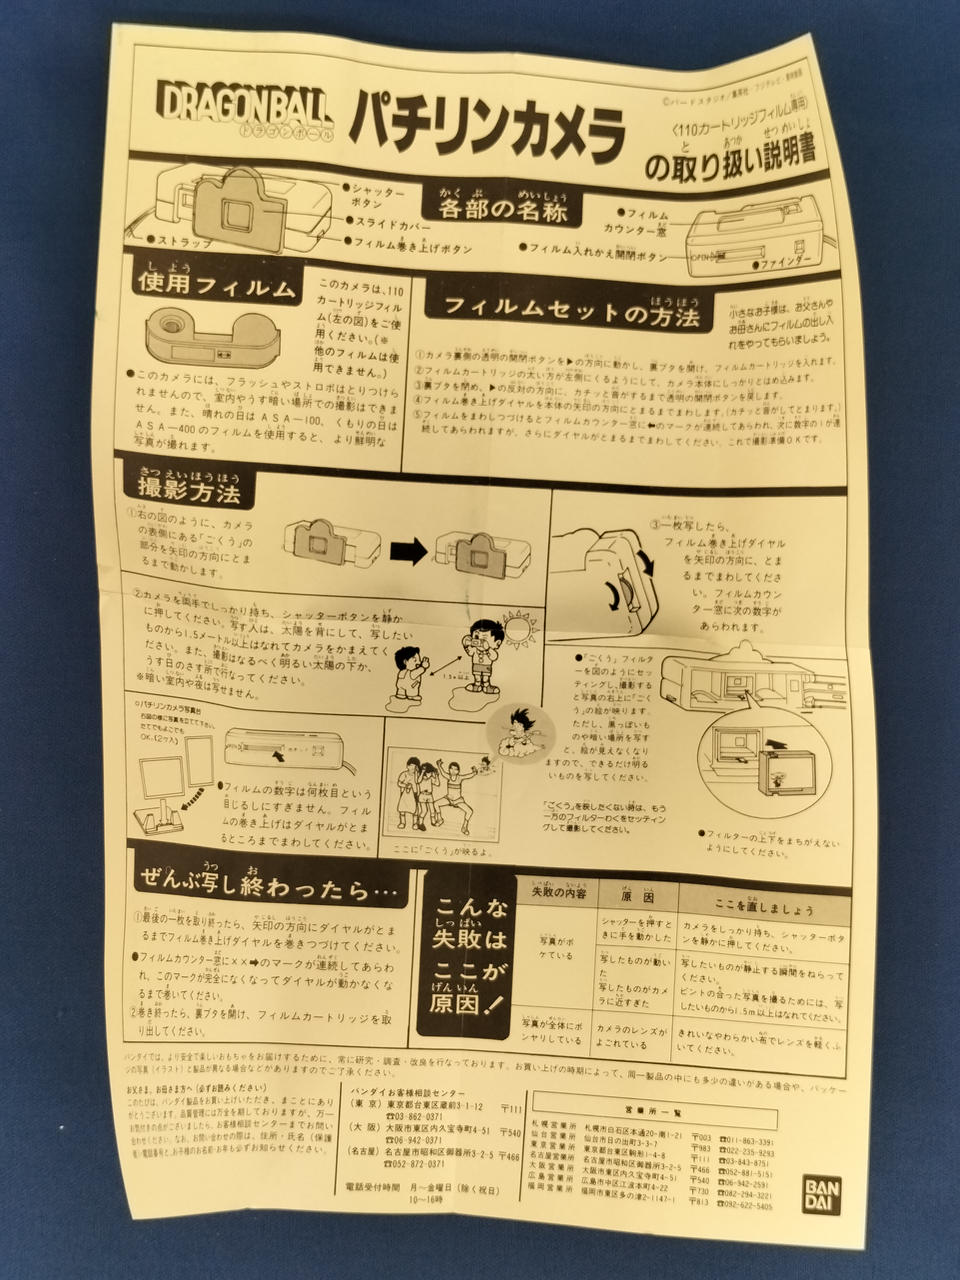 ©バードスタジオ/集英社・フジテレビ・東映動画
DRAGONBALL
ドラゴンボール
パチリンカメラ
〈110カートリッジフィルム専用〉
の取り扱い説明書
各部の名称
●シャッター
ボタン
●スライドカバー
●フィルム巻き上げボタン
●ストラップ
●フィルム
カウンター窓
●フィルム入れかえ開閉ボタン
OPEN
●ファインダー
使用フィルム
このカメラは、110
カートリッジフィル
ム(左の図)をご使
用ください。(※
他のフィルムは使
用できません。)
●このカメラには、フラッシュやストロボはとりつけら
れませんので、室内やうす暗い場所での撮影はできま
せん。また、晴れの日はASA—100、くもりの日は
ASA—400のフィルムを使用すると、より鮮明な
写真が撮れます。
フィルムセットの方法
小さなお子様は、お父さんや
お母さんにフィルムの出し入
れをやってもらいましょう。
①カメラ裏側の透明の開閉ボタンを▶の方向に動かし、裏ブタを開け、フィルムカートリッジを入れます。
②フィルムカートリッジの太い方が左側にくるようにして、カメラ本体にしっかりとはめ込みます。
③裏ブタを閉め、▶の反対の方向に、カチッと音がするまで透明の開閉ボタンを戻します。
④フィルム巻き上げダイヤルを本体の矢印の方向にとまるまでまわします。(カチッと音がしてとまります。)
⑤フィルムをまわしつづけるとフィルムカウンター窓に⬅のマークが連続してあらわれ、次に数字の1が連
続してあらわれますが、さらにダイヤルがとまるまでまわしてください。これで撮影準備OKです。
撮影方法
①右の図のように、カメラ
の表側にある「ごくう」の
部分を矢印の方向にとま
るまで動かします。
②カメラを両手でしっかり持ち、シャッターボタンを静か
に押してください。写す人は、太陽を背にして、写したい
ものから1.5メートル以上はなれてカメラをかまえてく
ださい。また、撮影はなるべく明るい太陽の下か、
うす日のさす所で行なってください。
※暗い室内や夜は写せません。
1.5m以上
③一枚写したら、
フィルム巻き上げダイヤル
を矢印の方向に、とま
るまでまわしてくださ
い。フィルムカウン
ター窓に次の数字が
あらわれます。
●「ごくう」フィルタ
ーを図のようにセッ
ティングし、撮影する
と写真の右上に「ごく
う」の絵が映ります。
ただし、黒っぽいも
のや暗い場所を写す
と、絵が見えなくなり
ますので、できるだけ明る
いものを写してください。
「ごくう」を映したくない時は、もう
一方のフィルターわくをセッティン
グして撮影してください。
●フィルターの上下をまちがえない
ようにしてください。
○パチリンカメラ写真台
右図の様に写真を立てて下さい。
たてでもよこでも
OK.(2ケ入)
●フィルムの数字は何枚目という
目じるしにすぎません。フィル
ムの巻き上げはダイヤルがとま
るところまでまわしてください。
ここに「ごくう」が映るよ。
ぜんぶ写し終わったら…
①最後の一枚を取り終ったら、矢印の方向にダイヤルがとま
るまでフィルム巻き上げダイヤルを巻きつづけてください。
●フィルムカウンター窓に××➡のマークが連続してあらわ
れ、このマークが完全になくなってダイヤルが動かなくな
るまで巻いてください。
②巻き終ったら、裏ブタを開け、フィルムカートリッジを取
り出してください。
こんな
失敗は
ここが
原因!
失敗の内容
原因
ここを直しましょう
写真がボ
ケている
シャッターを押すと
きに手を動かした
カメラをしっかり持ち、シャッターボタ
ンを静かに押してください。
写したものが動い
た
写したいものが静止する瞬間をねらって
ください。
写したものがカメ
ラに近すぎた
ピントの合った写真を撮るためには、写
したいものから1.5m以上はなれてください。
写真が全体にボ
ンヤリしている
カメラのレンズが
よごれている
きれいなやわらかい布でレンズを軽くふ
いてください。
バンダイでは、より安全で楽しいおもちゃをお届けするために、常に研究・調査・改良を行なっております。お買い上げの時期によって、同一製品の中にも多少の違いがある場合や、パッケー
ジの写真(イラスト)と製品が異なる場合などがありますのでご了承ください。
お父さま、お母さま方へ(必ずお読みください)
このたびは、バンダイ製品をお買い上げいただき、まことにあり
がとうございます。品質管理には万全を期しておりますが、万一
お気付きの点がございましたら、お客様相談センターまでお問い
合わせください。なお、お問い合わせの際は、住所・氏名(保護
者)電話番号と、お子様のお名前・お年も必ずお知らせください。
バンダイお客様相談センター
(東京)東京都台東区蔵前3-1-12 〒111
☎03-862-0371
(大阪)大阪市東区内久宝寺町4-51 〒540
☎06-942-0371
(名古屋)名古屋市昭和区御器所3-2-5 〒466
☎052-872-0371
電話受付時間 月〜金曜日(除く祝日)
10〜16時
営業所一覧
札幌営業所 札幌市白石区本通20-南1-21 〒003 ☎011-863-3391
仙台営業所 仙台市日の出町3-3-7 〒983 ☎022-235-9293
東京営業所 東京都台東区駒形1-4-8 〒111 ☎03-843-8751
名古屋営業所 名古屋市昭和区御器所3-2-5 〒466 ☎052-881-5151
大阪営業所 大阪市東区内久宝寺町4-51 〒540 ☎06-942-2591
広島営業所 広島市中区江波本町4-22 〒730 ☎082-294-3221
福岡営業所 福岡市東区多の津2-1147-1 〒813 ☎092-622-5405
BAN
DAI